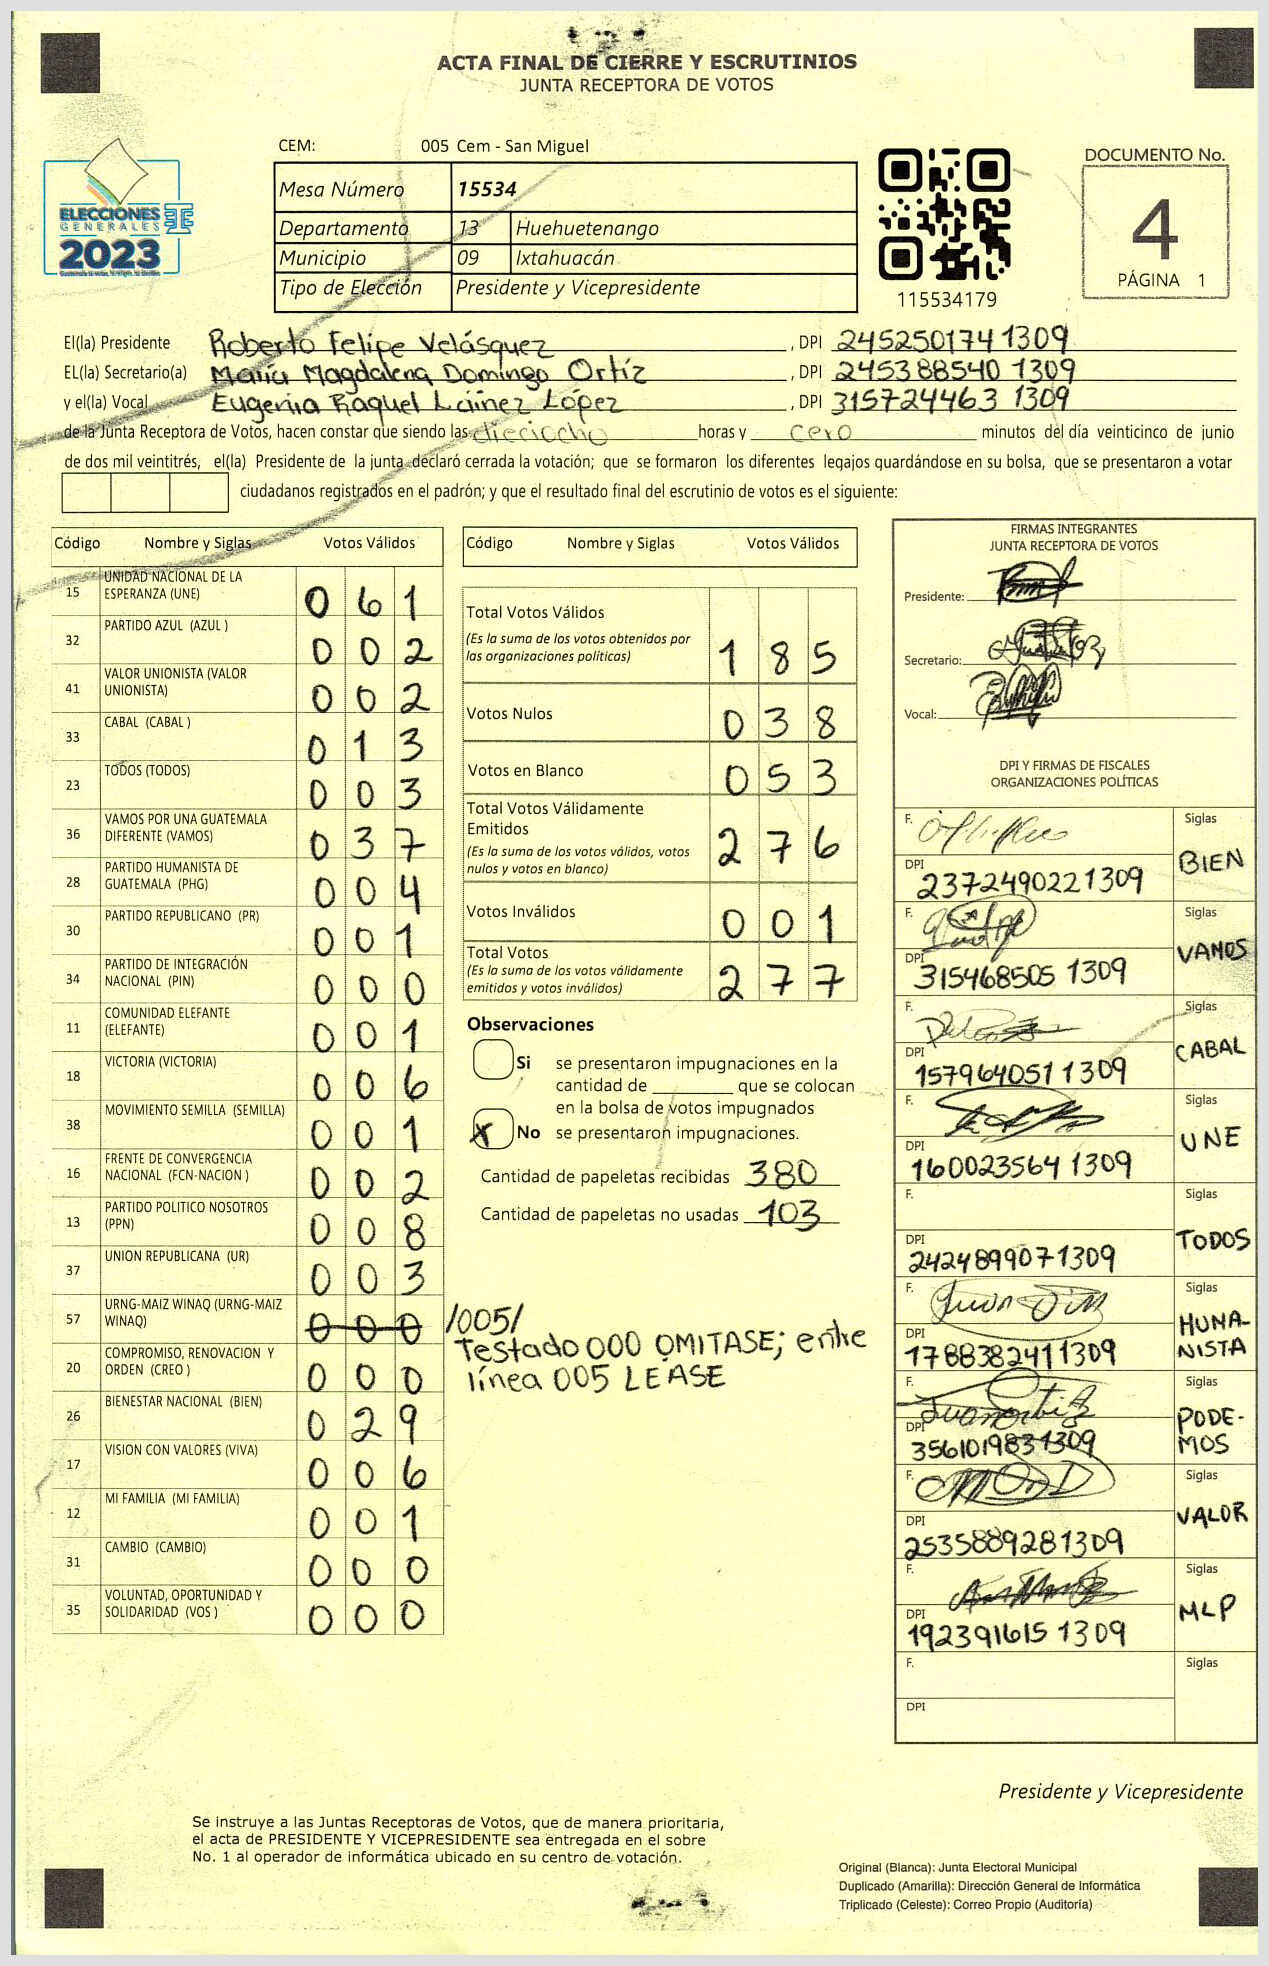 ACTA FINAL DE CIERRE Y ESCRUTINIOS
JUNTA RECEPTORA DE VOTOS
CEM: 005 Cem - San Miguel
Mesa Número 15534
Departamento 13 Huehuetenango
Municipio 09 Ixtahuacán
Tipo de Elección Presidente y Vicepresidente
ELECCIONES
GENERALES
2023
115534179
DOCUMENTO No.
4
PÁGINA 1
El(la) Presidente Roberto Felipe Velásquez , DPI 245250174 1309
EL(la) Secretario(a) María Magdalena Domingo Ortíz , DPI 245388540 1309
y el(la) Vocal Eugenia Raquel Láinez López , DPI 315724463 1309
de la Junta Receptora de Votos, hacen constar que siendo las dieciocho horas y cero minutos del día veinticinco de junio
de dos mil veintitrés, el(la) Presidente de la junta declaró cerrada la votación; que se formaron los diferentes legajos guardándose en su bolsa, que se presentaron a votar
ciudadanos registrados en el padrón; y que el resultado final del escrutinio de votos es el siguiente:
Código Nombre y Siglas Votos Válidos
15 UNIDAD NACIONAL DE LA ESPERANZA (UNE) 0 6 1
32 PARTIDO AZUL (AZUL ) 0 0 2
41 VALOR UNIONISTA (VALOR UNIONISTA) 0 0 2
33 CABAL (CABAL ) 0 1 3
23 TODOS (TODOS) 0 0 3
36 VAMOS POR UNA GUATEMALA DIFERENTE (VAMOS) 0 3 7
28 PARTIDO HUMANISTA DE GUATEMALA (PHG) 0 0 4
30 PARTIDO REPUBLICANO (PR) 0 0 1
34 PARTIDO DE INTEGRACIÓN NACIONAL (PIN) 0 0 0
11 COMUNIDAD ELEFANTE (ELEFANTE) 0 0 1
18 VICTORIA (VICTORIA) 0 0 6
38 MOVIMIENTO SEMILLA (SEMILLA) 0 0 1
16 FRENTE DE CONVERGENCIA NACIONAL (FCN-NACION ) 0 0 2
13 PARTIDO POLITICO NOSOTROS (PPN) 0 0 8
37 UNION REPUBLICANA (UR) 0 0 3
57 URNG-MAIZ WINAQ (URNG-MAIZ WINAQ) 0 0 0 /005/
20 COMPROMISO, RENOVACION Y ORDEN (CREO ) 0 0 0
26 BIENESTAR NACIONAL (BIEN) 0 2 9
17 VISION CON VALORES (VIVA) 0 0 6
12 MI FAMILIA (MI FAMILIA) 0 0 1
31 CAMBIO (CAMBIO) 0 0 0
35 VOLUNTAD, OPORTUNIDAD Y SOLIDARIDAD (VOS ) 0 0 0
Código Nombre y Siglas Votos Válidos
Total Votos Válidos 1 8 5
(Es la suma de los votos obtenidos por
las organizaciones políticas)
Votos Nulos 0 3 8
Votos en Blanco 0 5 3
Total Votos Válidamente
Emitidos 2 7 6
(Es la suma de los votos válidos, votos
nulos y votos en blanco)
Votos Inválidos 0 0 1
Total Votos 2 7 7
(Es la suma de los votos válidamente
emitidos y votos inválidos)
Observaciones
Si se presentaron impugnaciones en la
cantidad de ________ que se colocan
en la bolsa de votos impugnados
X No se presentaron impugnaciones.
Cantidad de papeletas recibidas 380
Cantidad de papeletas no usadas 103
Testado 000 OMITASE; entre
línea 005 LEASE
FIRMAS INTEGRANTES
JUNTA RECEPTORA DE VOTOS
Presidente:
Secretario:
Vocal:
DPI Y FIRMAS DE FISCALES
ORGANIZACIONES POLÍTICAS
F. Siglas
DPI 2372490221309 BIEN
F. Siglas
DPI 315468505 1309 VAMOS
F. Siglas
DPI 157964051 1309 CABAL
F. Siglas
DPI 160023564 1309 UNE
F. Siglas
DPI 2424899071309 TODOS
F. Siglas
DPI 1788382411309 HUMA-
NISTA
F. Siglas
DPI 3561019831309 PODE-
MOS
F. Siglas
DPI 2535889281309 VALOR
F. Siglas
DPI 192391615 1309 MLP
F. Siglas
DPI
Presidente y Vicepresidente
Se instruye a las Juntas Receptoras de Votos, que de manera prioritaria,
el acta de PRESIDENTE Y VICEPRESIDENTE sea entregada en el sobre
No. 1 al operador de informática ubicado en su centro de votación.
Original (Blanca): Junta Electoral Municipal
Duplicado (Amarilla): Dirección General de Informática
Triplicado (Celeste): Correo Propio (Auditoría)